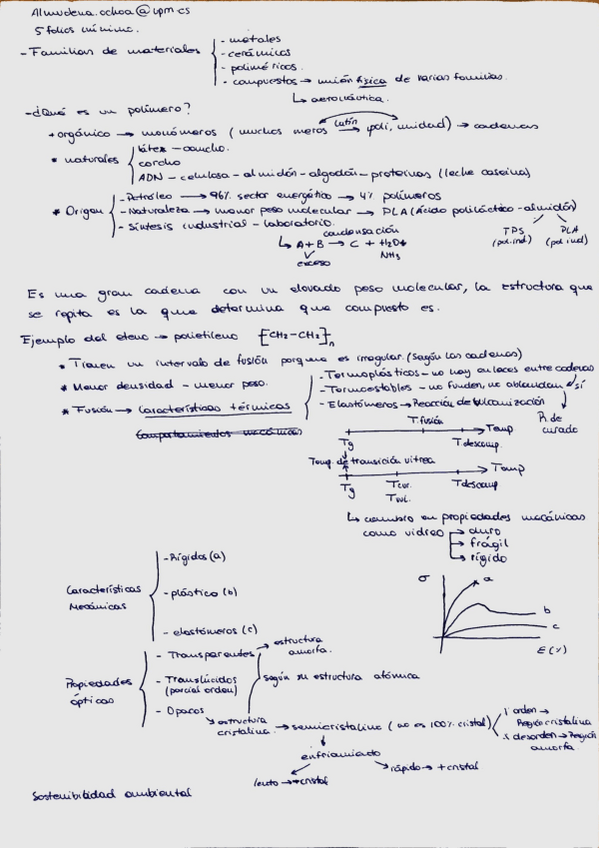 Almudena.ochoa@upm.es
5 folios mínimo.
- Familias de materiales
- metales
- cerámicos
- poliméricos.
- compuestos → unión física de varias familias.
↳ aeronáutica.
- ¿Qué es un polímero?
+ orgánico → monómeros (muchos meros → poli, unidad) → cadenas
latín
* naturales
látex - caucho.
corcho
ADN - celulosa - almidón - algodón - proteínas (leche caseína)
* Origen
- Petróleo → 96% sector energético → 4% polímeros
- Naturaleza → menor peso molecular → PLA (Ácido poliláctico - almidón)
- Síntesis industrial - laboratorio.
TPS (pol.ind) PLA (pol ind)
condensación
↳ A + B → C + H2O↑
exceso NH3
Es una gran cadena con un elevado peso molecular, la estructura que
se repita es la que determina que compuesto es.
Ejemplo del eteno → polietileno [CH2-CH2]n
* Tienen un intervalo de fusión porque es irregular. (Según las cadenas)
* Menor densidad - menor peso.
* Fusión → Características térmicas
- Termoplásticos - no hay enlaces entre cadenas
- Termoestables - no funden, no ablandan sí
- Elastómeros → Reacción de vulcanización
R. de curado
Comportamientos mecánicos
T.fusión
Temp
Tg T.descomp.
Temp. de transición vítrea
Temp
Tg Tcur. T.descomp
Tvul.
↳ cambio en propiedades mecánicas
como vidrio → duro
→ frágil
→ rígido
Características Mecánicas
- Rígidos (a)
- plástico (b)
- elastómeros (c)
σ a
b
c
E (%)
Propiedades ópticas
- Transparentes → estructura amorfa.
- Translúcidos (parcial orden)
- Opacos
según su estructura atómica
estructura cristalina. → semicristalino (no es 100% cristal)
orden → Región cristalina
desorden → Región amorfa.
enfriamiento
lento → +cristal
rápido → + cristal
Sostenibilidad ambiental